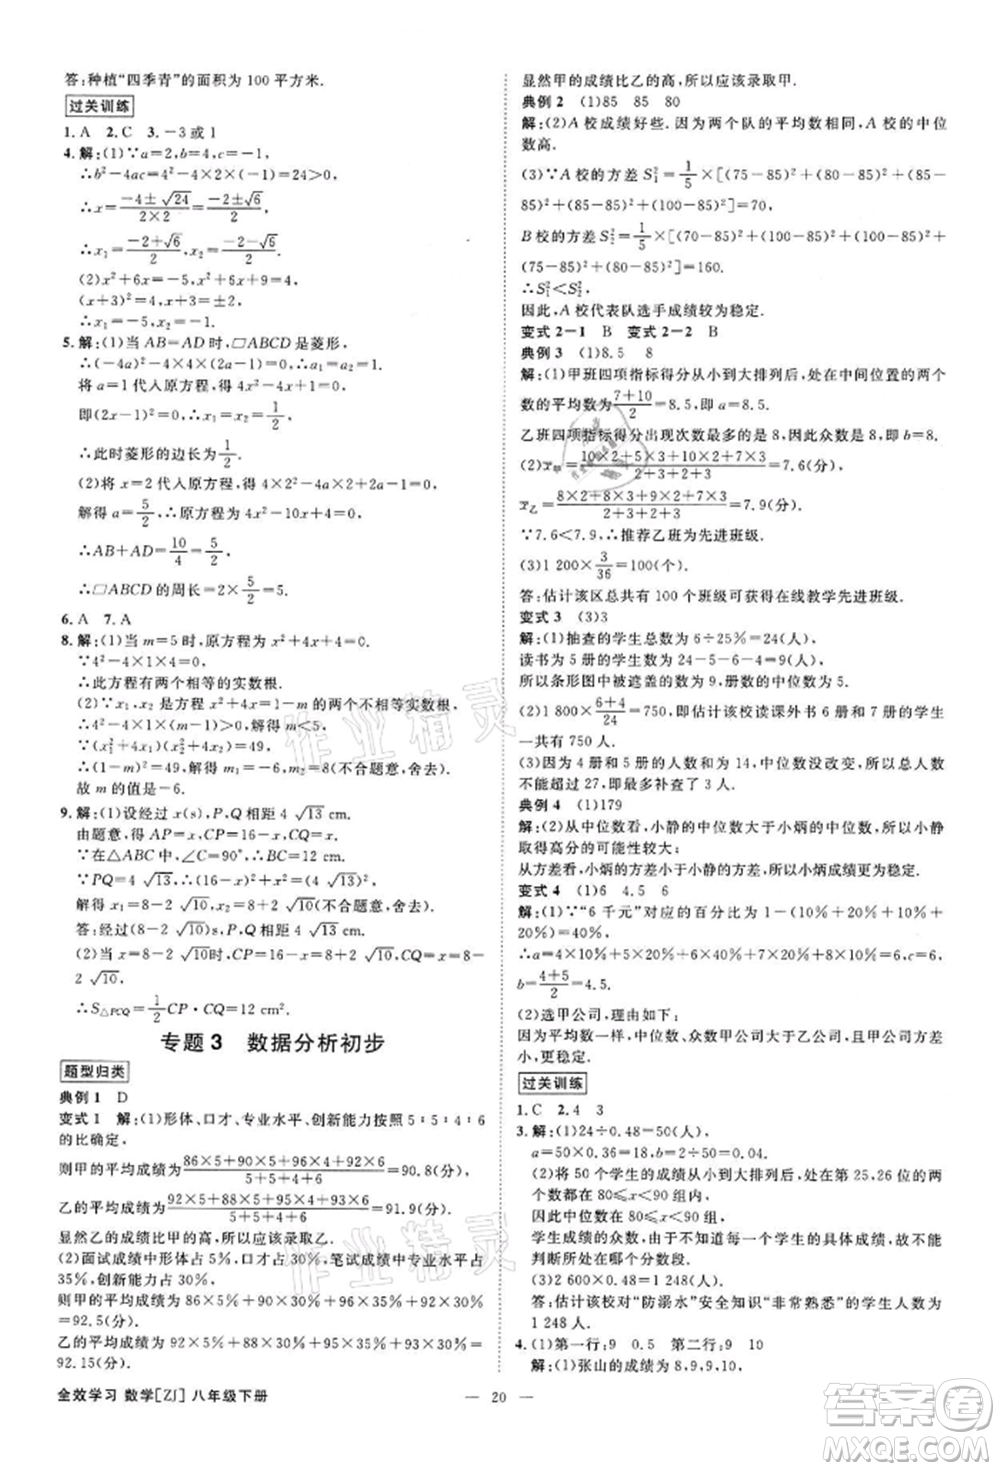 答:种植“四季青”的面积为 100 平方米.
过关训练
1. A  2. C  3. －3 或 1
4. 解:(1)∵a=2,b=4,c=－1,
∴b²－4ac=4²－4×2×(－1)=24>0,
∴x=(－4±√24)/(2×2)=(－2±√6)/2,
∴x₁=(－2+√6)/2,x₂=(－2－√6)/2.
(2)x²+4x+4=0+4,
(x+2)²=4,x+2=±2,
∴x₁=0,x₂=－4.
5. 解:(1)当 AB=AD 时,▱ABCD 是菱形,
∴(－4a)²－4×4×(2a－1)=0,∴a₁=a₂=1.
将 a=1 代入原方程,得 4x²－4x+1=0,
即(2x－1)²=0,∴x₁=x₂=1/2,
∴此时菱形的边长为1/2.
(2)将 x=2 代入原方程,得 4×2²－4a×2+2a－1=0,
解得 a=5/2,∴原方程为 4x²－10x+4=0,
∴AB+AD=10/4=5/2,
∴▱ABCD 的周长为 2×5/2=5.
6. A  7. A
8. 解:(1)当 m=5 时,原方程为 x²+4x+4=0,
∵4²－4×1×4=0,
∴此方程有两个相等的实数根.
(2)∵x₁,x₂ 为方程的两个不相等的实数根,
∴4²－4×1×(m－1)>0,解得 m<5.
∵(x₁²+x₂²)+x₁x₂=49,
∴16－(m－1)=49,解得 m₁=－6,m₂=－32(不合题意,舍去).
故 m 的值是－6.
9. 解:(1)设经过 x(s),P,Q 相距 4 √13 cm.
由题意,得 AP=x,CQ=2x,∴CP=16－x.
∵在△ABC 中,∠C=90°,∴PQ²=CP²+CQ².
∵PQ=4 √13,∴(16－x)²+(2x)²=(4 √13)²,
解得 x₁=8－2 √10,x₂=8+2 √10(不合题意,舍去).
答:经过(8－2 √10)s,P,Q 相距 4 √13 cm.
√10,
∴S△PCQ=1/2CP·CQ=12 cm².
专题 3  数据分析初步
题型归类
典例 1  D
变式 1  解:(1)形体、口才、专业水平、创新能力按照 5∶5∶4∶6
的比确定,
则甲的平均成绩为(86×5+90×5+96×4+92×6)/(5+5+4+6)=90.8(分),
乙的平均成绩为(92×5+88×5+95×4+93×6)/(5+5+4+6)=91.9(分).
显然乙的成绩比甲的高,所以应该录取乙.
(2)面试成绩中形体占 5%,口才占 30%,笔试成绩中专业水平占
35%,创新能力占 30%,
则甲的平均成绩为 86×5%+90×30%+96×35%+92×30%=92.5(分),
乙的平均成绩为 92×5%+88×30%+95×35%+93×30%=
92.15(分).
显然甲的成绩比乙的高,所以应该录取甲.
典例 2  (1)85  85  80
解:(2)A 校成绩好些. 因为两个队的平均数相同,A 校的中位
数高.
(3)∵A 校的方差 S₁²=1/5×[(75－85)²+(80－85)²+(85－
85)²+(85－85)²+(100－85)²]=70,
B 校的方差 S₂²=1/5×[(70－85)²+(100－85)²+(100－85)²+
(75－85)²+(80－85)²]=160.
∴S₁²<S₂²,
因此,A 校代表队选手成绩较为稳定.
变式 2－1  B  变式 2－2  B
典例 3  (1)8.5  8
解:(1)甲班四项指标得分从小到大排列后处在中间位置的两个
数的平均数为(7+10)/2=8.5,即 a=8.5.
乙班四项指标得分出现次数最多的是 8,因此众数是 8,即 b=8.
(2)∵x̄甲=(10×2+7×2+10×2+7×3)/(2+3+2+3)=7.6(分),
x̄乙=(8×2+8×3+9×2+7×3)/(2+3+2+3)=7.9(分).
∵7.6<7.9,∴推荐乙班为先进班级.
(3)1 200×3/36=100(个).
答:估计该区总共有 100 个班级可获得在线教学先进班级.
变式 3  (3)3
解:(1)抽查的学生总数为 6÷25%=24(人),
读书为 5 册的学生数为 24－5－6－4=9(人),
所以条形图中被遮盖的数为 9,册数的中位数为 5.
(2)1 800×(6+4)/24=750,即估计该校读课外书 6 册和 7 册的学生
一共有 750 人.
(3)因为 4 册和 5 册的人数和为 14,中位数没改变,所以总人数
不能超过 27,即最多补查了 3 人.
典例 4  (1)179
解:(2)从中位数看,小静的中位数大于小炳的中位数,所以小静
取得高分的可能性较大;
从方差看,小炳的方差小于小静的方差,所以小炳成绩更稳定.
变式 4  (1)6  4.5  6
解:(1)∵“6 千元”对应的百分比为 1－(10%+20%+10%+
20%)=40%,
∴a=4×10%+5×20%+6×40%+7×20%+8×10%=6,
b=(4+5)/2=4.5.
(2)选甲公司,理由如下:
因为平均数、中位数、众数甲公司大于乙公司,且甲公司方差小,
更稳定.
过关训练
1. C  2. 4  3
3. 解:(1)24÷0.48=50(人),
a=50×0.36=18(人),b=2÷50=0.04.
(2)将 50 个学生的成绩从小到大排列,第 25,26 位处在的
个数都在 80≤x<90 组内,
因此中位数在 80≤x<90 组.
成绩的众数,由于变式不知每一个学生的具体成绩,因此不能
判断所在哪个分数段.
(3)2 600×0.48=1 248(人).
答:估计该校对“防溺水”安全知识“非常熟悉”的学生人数为
1 248 人.
4. (1)第一行:9  0.5  第二行:9  10
解:(1)张山的成绩为 8,9,9,10,
全效学习 数学[ZJ] 八年级下册
— 20 —
作业精灵
作业精灵
答案圈
MXQE.COM